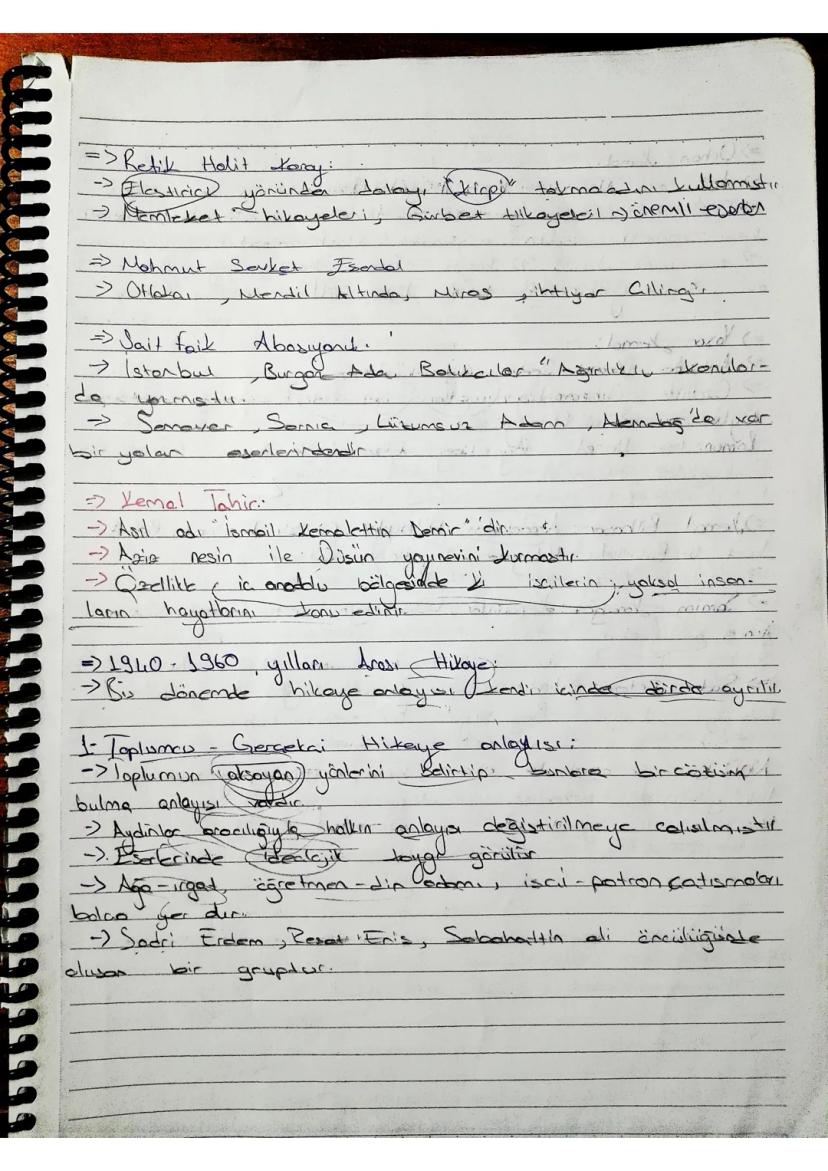 => Refik Halit Karay:
-> Eleştirici yönünden dolayı "kirpi" takma adını kullanmıştır
-> Memleket hikayeleri, Gurbet Hikayeleri -> önemli eserleri
=> Mahmut Şevket Esendal
-> Otlakçı, Mendil Altında, Miras, ihtiyar Çilingir.
=> Sait Faik Abasıyanık.
-> İstanbul, Burgaz Ada, Balıkçılar "Ağırlıklı konular-
da yazmıştır.
-> Semaver, Sarnıç, Lüzumsuz Adam, Alemdağ'da var
bir yılan eserlerindendir
=> Kemal Tahir:
-> Asıl adı "İsmail Kemalettin Demir"dir.
-> Aziz nesin ile Düşün yayınevini kurmuştur.
-> Özellikle iç anadolu bölgesinde ki işçilerin, yoksul insan-
ların hayatlarını konu edinir.
=> 1940-1960 yılları Arası Hikaye:
-> Bu dönemde hikaye anlayışı kendi içinde dörde ayrılır.
1- Toplumcu - Gerçekçi Hikaye anlayışı:
-> Toplumun aksayan yönlerini belirtip bunlara bir çözüm
bulma anlayışı vardır.
-> Aydınlar aracılığıyla halkın anlayışı değiştirilmeye çalışılmıştır
-> Eserlerinde ideolojik kaygı görülür
-> Ağa-ırgat, öğretmen-din adamı, işçi-patron çatışmaları
bolca yer alır.
-> Sadri Erdem, Reşat Enis, Sabahattin ali öncülüğünde
oluşan bir gruptur.